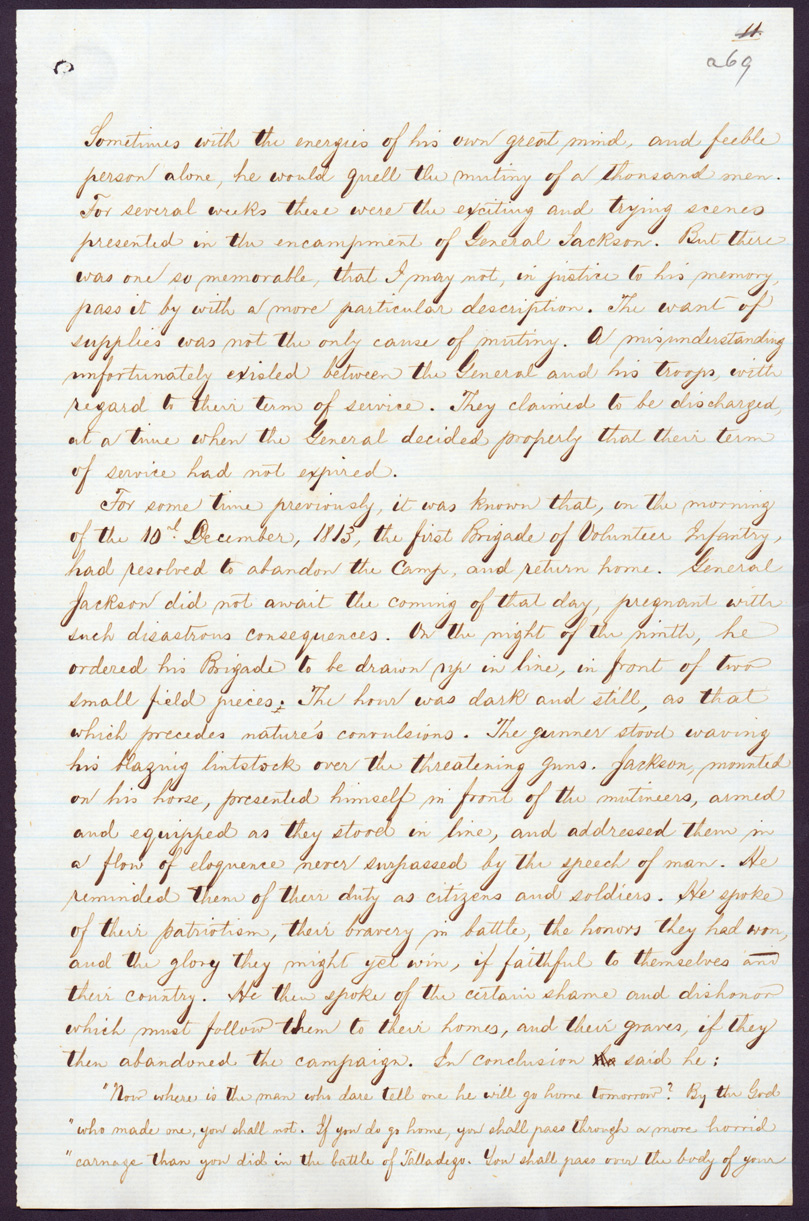 11.
269
Sometimes with the energies of his own great mind, and feeble
person alone, he would quell the mutiny of a thousand men.
For several weeks these were the exciting and trying scenes
presented in the encampment of General Jackson. But there
was one so memorable, that I may not, in justice to his memory,
pass it by with a more particular description. The want of
supplies was not the only cause of mutiny. A misunderstanding
unfortunately existed between the General and his troops, with
regard to their term of service. They claimed to be discharged,
at a time when the General decided properly that their term
of service had not expired.
For some time previously, it was known that, on the morning
of the 10th December, 1813, the first Brigade of Volunteer Infantry,
had resolved to abandon the Camp, and return home. General
Jackson did not await the coming of that day, pregnant with
such disastrous consequences. On the night of the ninth, he
ordered his Brigade to be drawn up in line, in front of two
small field pieces; The hour was dark and still, as that
which precedes nature's convulsions. The gunner stood waving
his blazing lintstock over the threatening guns. Jackson, mounted
on his horse, presented himself in front of the mutineers, armed
and equipped as they stood in line, and addressed them in
a flow of eloquence never surpassed by the speech of man. He
reminded them of their duty as citizens and soldiers. He spoke
of their patriotism, their bravery in battle, the honors they had won,
and the glory they might yet win, if faithful to themselves and
their country. He then spoke of the certain shame and dishonor
which must follow them to their homes, and their graves, if they
then abandoned the campaign. In conclusion said he:
"Now where is the man who dare tell me he will go home tomorrow? By the God
"who made me, you shall not. If you do go home, you shall pass through a more horrid
"carnage than you did in the battle of Talladego. You shall pass over the body of your